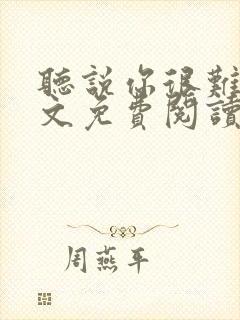 聽說你很難
文免費閱讀
周燕平